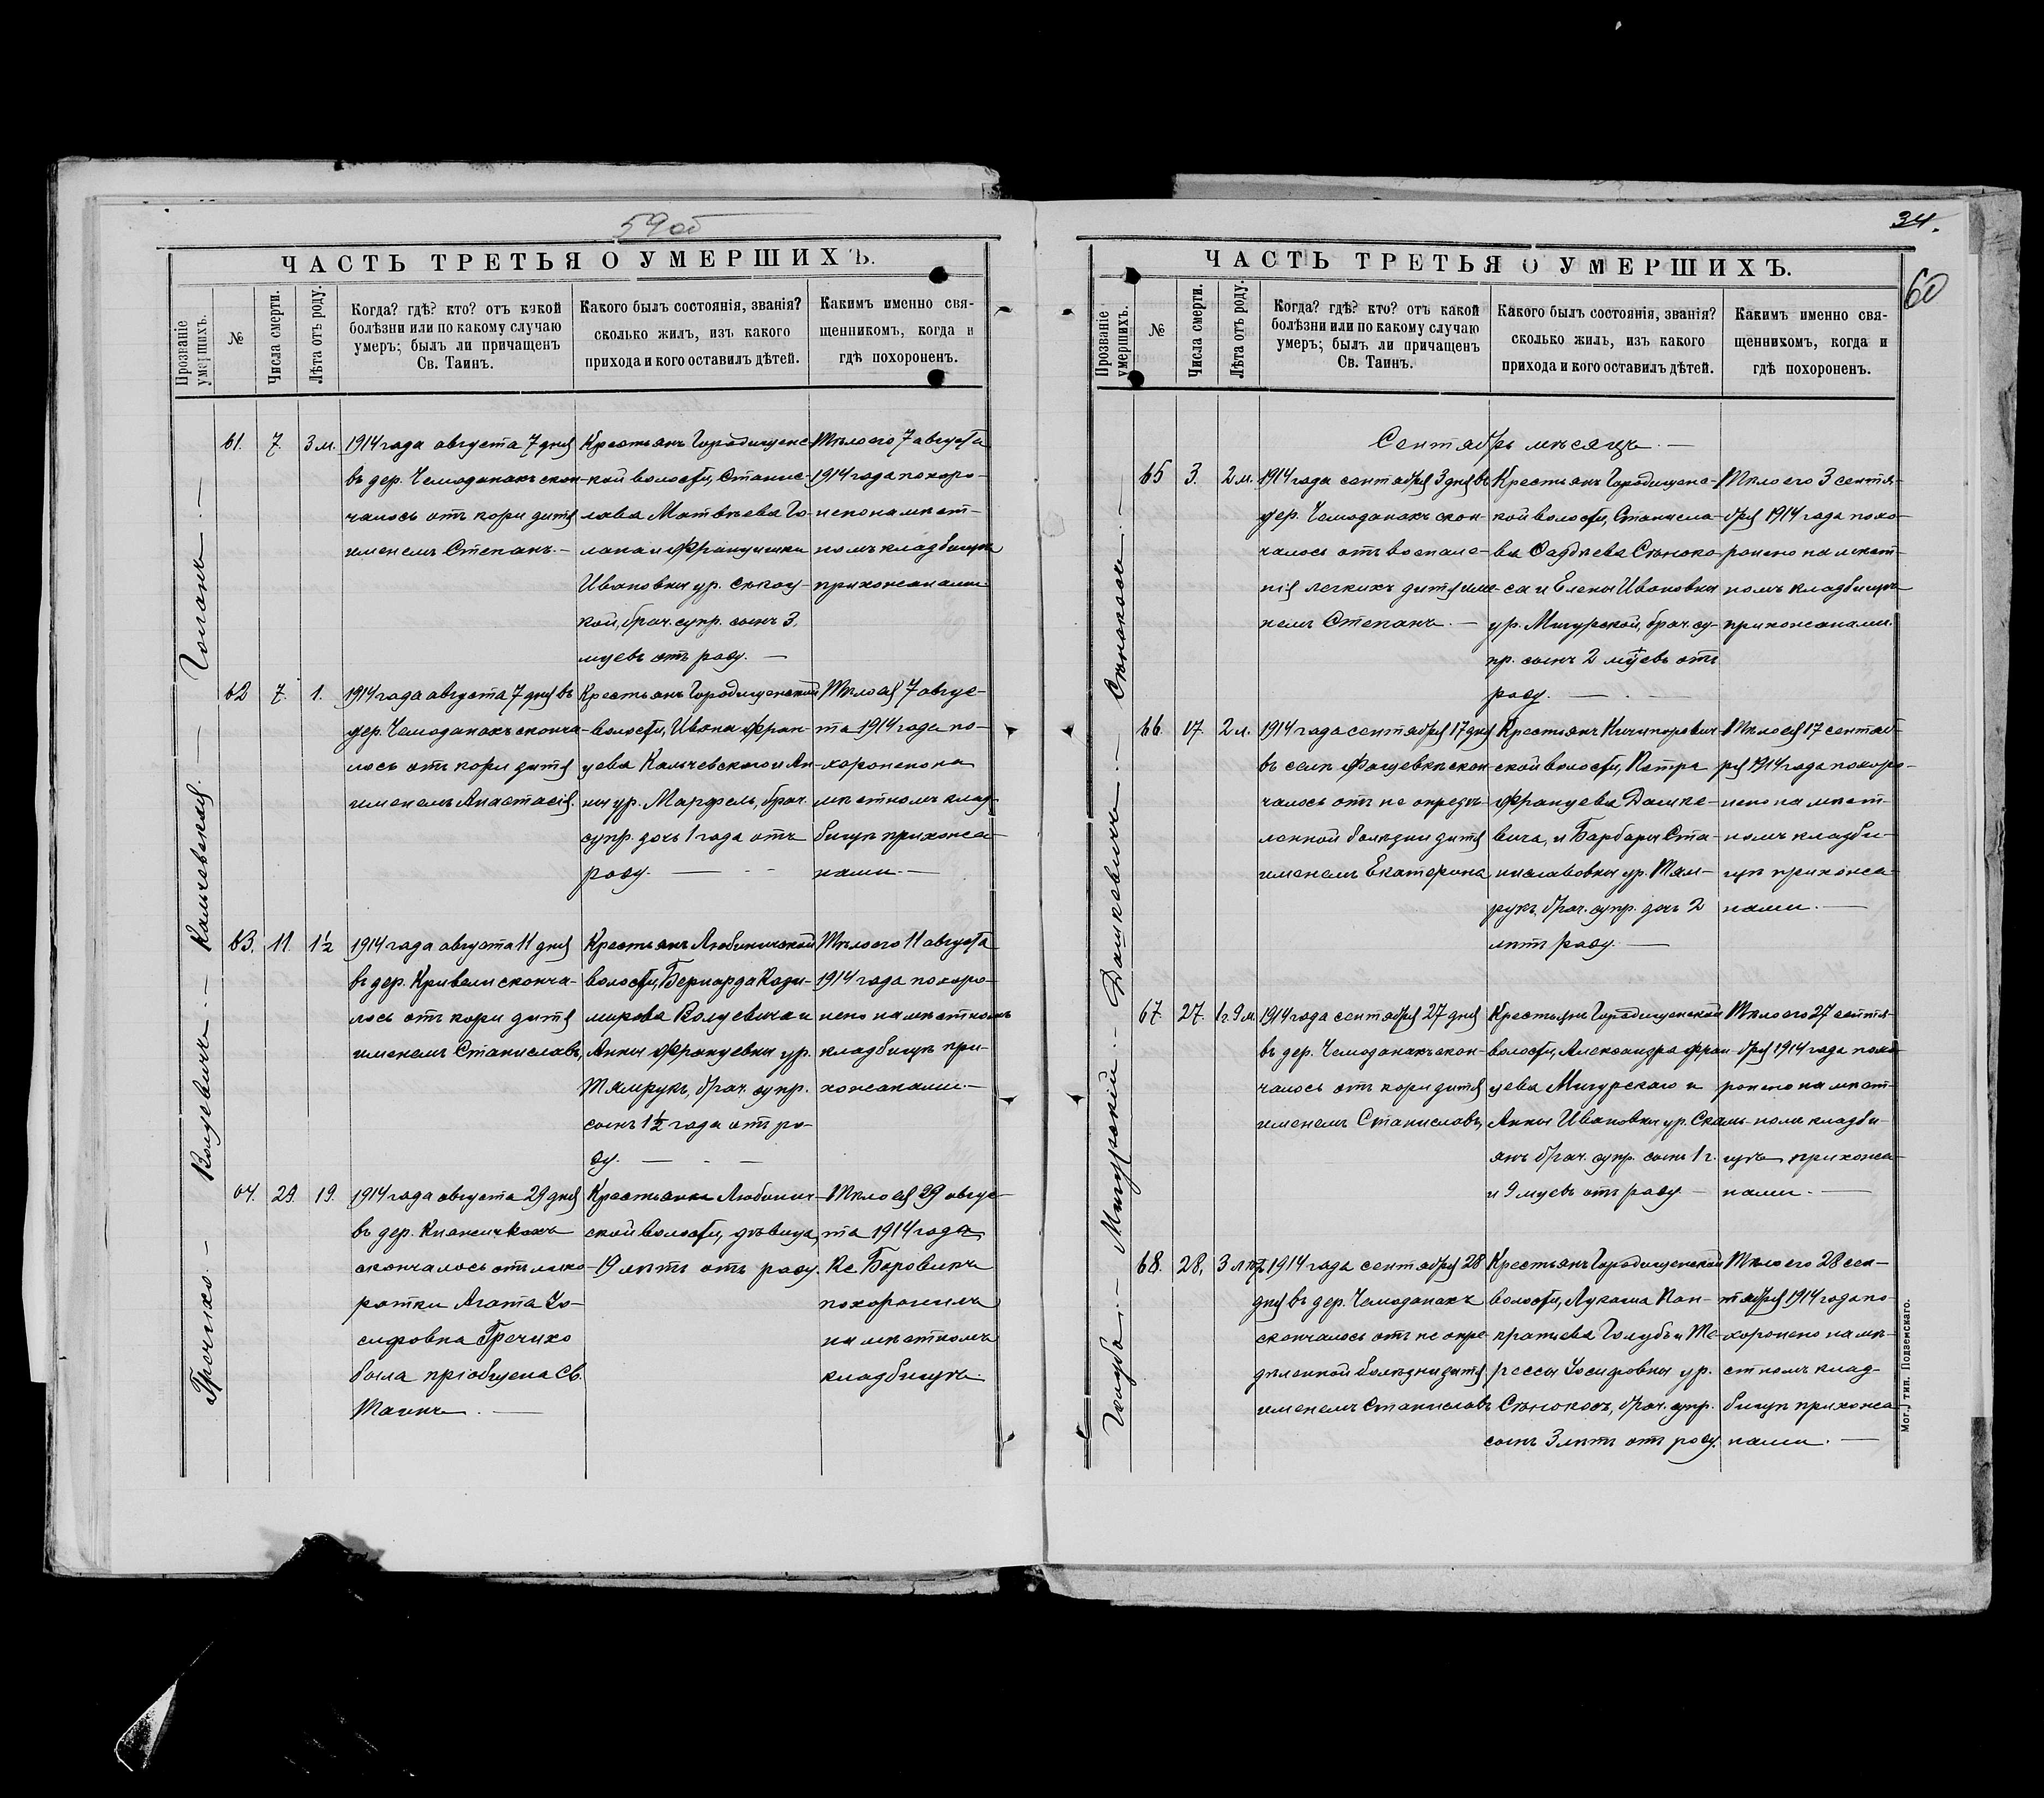 59 об
ЧАСТЬ ТРЕТЬЯ О УМЕРШИХЪ.
Прозваніе умершихъ.
№
Числа смерти.
Лѣта отъ роду.
Когда? гдѣ? кто? отъ какой
болѣзни или по какому случаю
умеръ; былъ ли причащенъ
Св. Таинъ.
Какого былъ состоянія, званія?
сколько жилъ, изъ какого
прихода и кого оставилъ дѣтей.
Какимъ именно свя-
щенникомъ, когда и
гдѣ похороненъ.
61. 7. 3 м.
1914 года августа 7 дня
въ дер. Чемоданахъ скон-
чалось отъ кори дитя
именемъ Степанъ. —
Крестьянъ Городищенс-
кой волости, Станис-
лава Матвѣева Го-
лана и Францишки
Ивановны ур.
кой, брач. супр. сынъ 3
мцевъ отъ роду. —
Тѣло его 7 августа
1914 года похоро-
нено на мѣст-
номъ кладбищѣ
прихожанами.
62 7. 1.
1914 года августа 7 дня въ
дер. Чемоданахъ сконча-
лось отъ кори дитя
именемъ Анастасія.
Крестьянъ Городищенской
волости, Ивана Фран-
цева Кальчевского и Ан-
ны ур. Марфель, брач.
супр. дочь 1 года отъ
роду. —
Тѣло ея 7 авгус-
та 1914 года по-
хоронено на
мѣстномъ клад-
бищѣ прихожа-
нами. —
63. 11. 1½
1914 года августа 11 дня
въ дер. Кривели сконча-
лось отъ кори дитя
именемъ Станиславъ,
Крестьянъ Любиничской
волости, Бернарда Кази-
мирова Волуевича и
Анны Францевны ур.
Тямрукъ, брач. супр.
сынъ 1½ года отъ ро-
ду. — - —
Тѣло его 11 августа
1914 года похоро-
нено на мѣстномъ
кладбищѣ при-
хожанами. —
64. 29. 19.
1914 года августа 29 дня
въ дер. Княжичкахъ
скончалось отъ лихо-
ратки Агата Іо-
сифовна Гречихо
была пріобщена Св.
Таинъ. —
Крестьянка Любинич-
ской волости, дѣвица,
19 лѣтъ отъ роду.
Тѣло ея 29 авгус-
та 1914 года
Кс. Боровикъ
похоронилъ
на мѣстномъ
кладбищѣ.
Гречихо. — Волуевичъ. — Кальчевская. — Голанъ. —
34.
60
ЧАСТЬ ТРЕТЬЯ О УМЕРШИХЪ.
Прозваніе умершихъ.
№
Числа смерти.
Лѣта отъ роду.
Когда? гдѣ? кто? отъ какой
болѣзни или по какому случаю
умеръ; былъ ли причащенъ
Св. Таинъ.
Какого былъ состоянія, званія?
сколько жилъ, изъ какого
прихода и кого оставилъ дѣтей.
Какимъ именно свя-
щенникомъ, когда и
гдѣ похороненъ.
Сентябрь мѣсяцъ. —
65 3. 2 м.
1914 года сентября 3 дня въ
дер. Чемоданахъ скон-
чалось отъ воспале-
нія легкихъ дитя име-
немъ Степанъ. —
Крестьянъ Городищенс-
кой волости, Станисла-
ва Фаддѣева Сѣноко-
са и Елены Ивановны
ур. Мигурской, брач. су-
пр. сынъ 2 мцевъ отъ
роду. —
Тѣло его 3 сентя-
бря 1914 года похо-
ронено на мѣст-
номъ кладбищѣ
прихожанами.
66. 17. 2 л.
1914 года сентября 17 дня
въ селѣ Фащевкѣ скон-
чалось отъ не опредѣ-
ленной болѣзни дитя
именемъ Екатерина
Крестьянъ Ничипорович-
ской волости, Петра
Францева Дашке-
вича, и Барбары Ста-
ниславовны ур. Тям-
рукъ, брач. супр. дочь 2
лѣтъ роду. —
Тѣло ея 17 сентяб-
ря 1914 года похоро-
нено на мѣст-
номъ кладби-
щѣ прихожа-
нами. —
67. 27. 1 г. 9 м.
1914 года сентября 27 дня
въ дер. Чемоданахъ скон-
чалось отъ кори дитя
именемъ Станиславъ,
Крестьянъ Городищенской
волости, Александра Фран-
цева Мигурскаго и
Анны Ивановны ур. Скаль-
янъ брач. супр. сынъ 1 г.
и 9 мцевъ отъ роду —
Тѣло его 27 сентя-
бря 1914 года похо-
ронено на мѣст-
номъ кладби-
щѣ прихожа-
нами. —
68. 28, 3 лѣтъ
1914 года сентября 28
дня въ дер. Чемоданахъ
скончалось отъ не опре-
дѣленной болѣзни дитя
именемъ Станиславъ
Крестьянъ Городищенской
волости, Лукаша Пан-
кратіева Голубъ и Те-
рессы Іосифовны ур.
Сѣнокосъ, брач. супр.
сынъ 3 лѣтъ отъ роду.
Тѣло его 28 сен-
тября 1914 года по-
хоронено на мѣ-
стномъ клад-
бищѣ прихожа-
нами. —
Голубъ. — Мигурскій. — Дашкевичъ. — Сѣнокосъ. —
Мог., тип. Подземскаго.